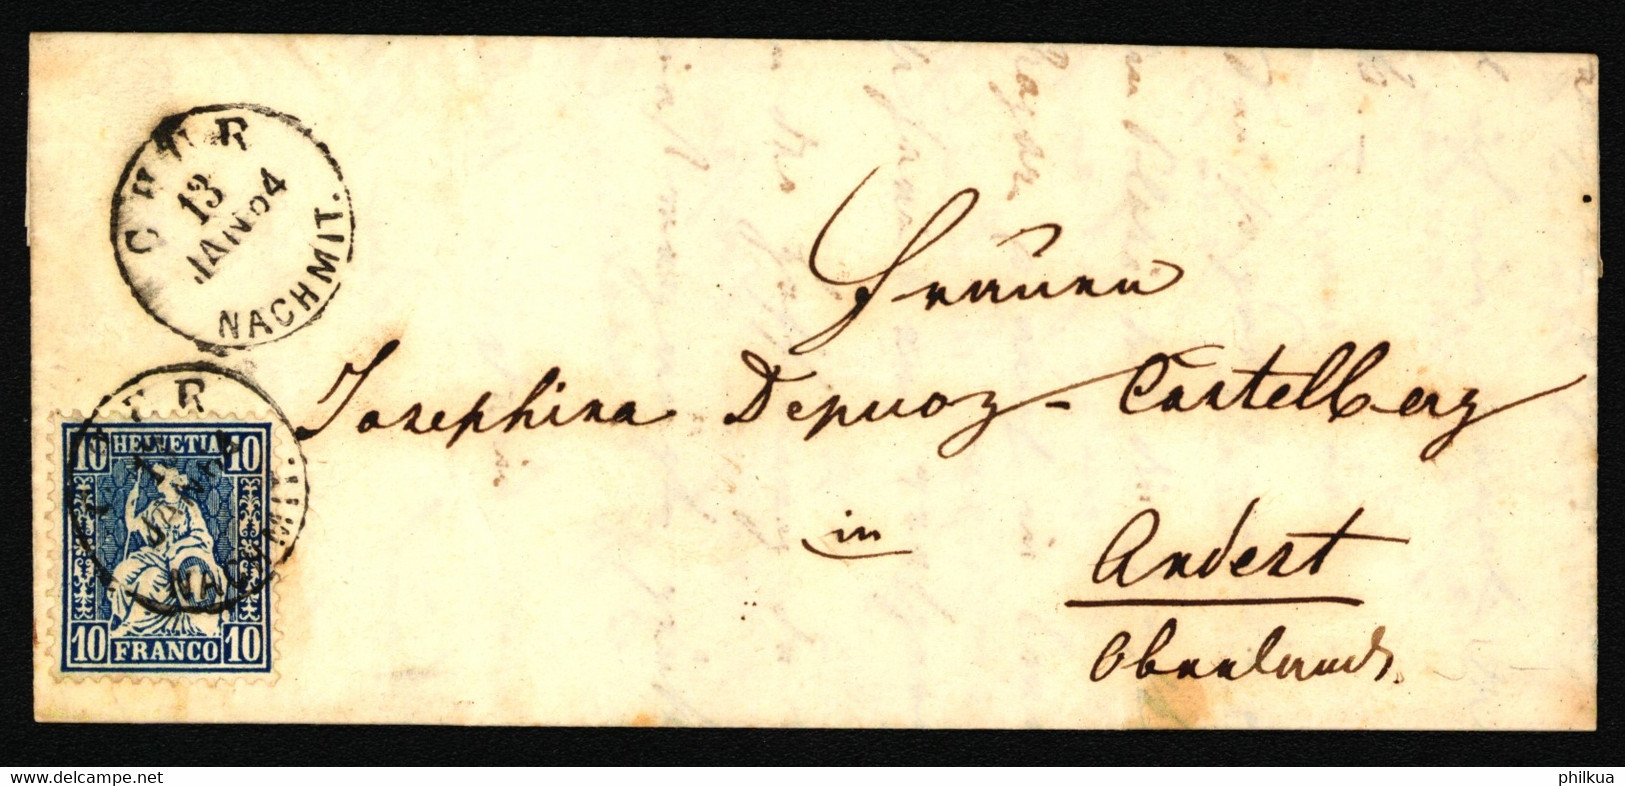 CHUR
13
JAN 64
NACHMIT.
Frauen
Josephina Depuoz - Castelberg
in
Andest
Oberland.
10 HELVETIA 10
10 FRANCO 10
NACHMIT.
www.delcampe.net
philkua